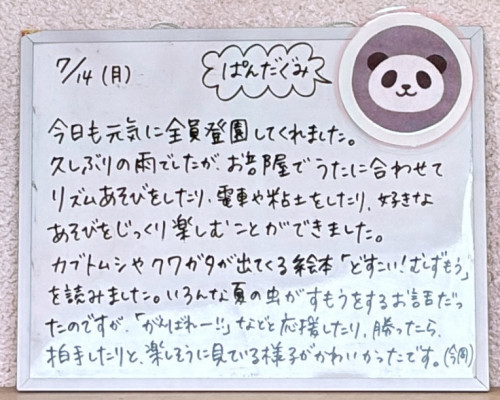 7/14 (月)
ぱんだぐみ
今日も元気に全員登園してくれました。
久しぶりの雨でしたが、お部屋でうたに合わせて
リズムあそびをしたり、電車や粘土をしたり、好きな
あそびをじっくり楽しむことができました。
カブトムシやクワガタが出てくる絵本「どすこい!むしずもう」
を読みました。いろんな夏の虫がすもうをするお話だっ
たのですが、「がんばれー!!」などと応援したり、勝ったら、
拍手したりと、楽しそうに見ている様子がかわいかったです。